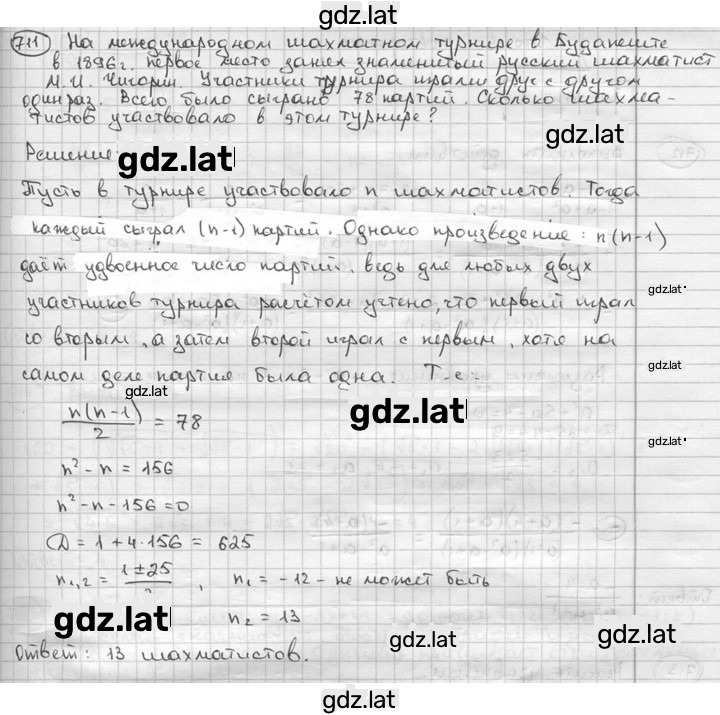 gdz.lat
711 На международном шахматном турнире в Будапеште
в 1896г. первое место занял знаменитый русский шахматист
М.И. Чигорин. Участники турнира играли друг с другом
один раз. Всего было сыграно 78 партий. Сколько шахма-
тистов участвовало в этом турнире?
gdz.lat
Решение:
gdz.lat
Пусть в турнире участвовало n шахматистов. Тогда
каждый сыграл (n-1) партий. Однако произведение: n(n-1)
даёт удвоенное число партий, ведь для любых двух
gdz.lat
участников турнира расчётом учтено, что первый играл
со вторым, а затем второй играл с первым, хотя на
gdz.lat
самом деле партия была одна. Т.е.:
gdz.lat
n(n-1)/2 = 78
gdz.lat
gdz.lat
n² - n = 156
n² - n - 156 = 0
D = 1 + 4·156 = 625
n₁,₂ = (1±25)/2, n₁ = -12 - не может быть
gdz.lat
n₂ = 13
gdz.lat
gdz.lat
Ответ: 13 шахматистов.
gdz.lat